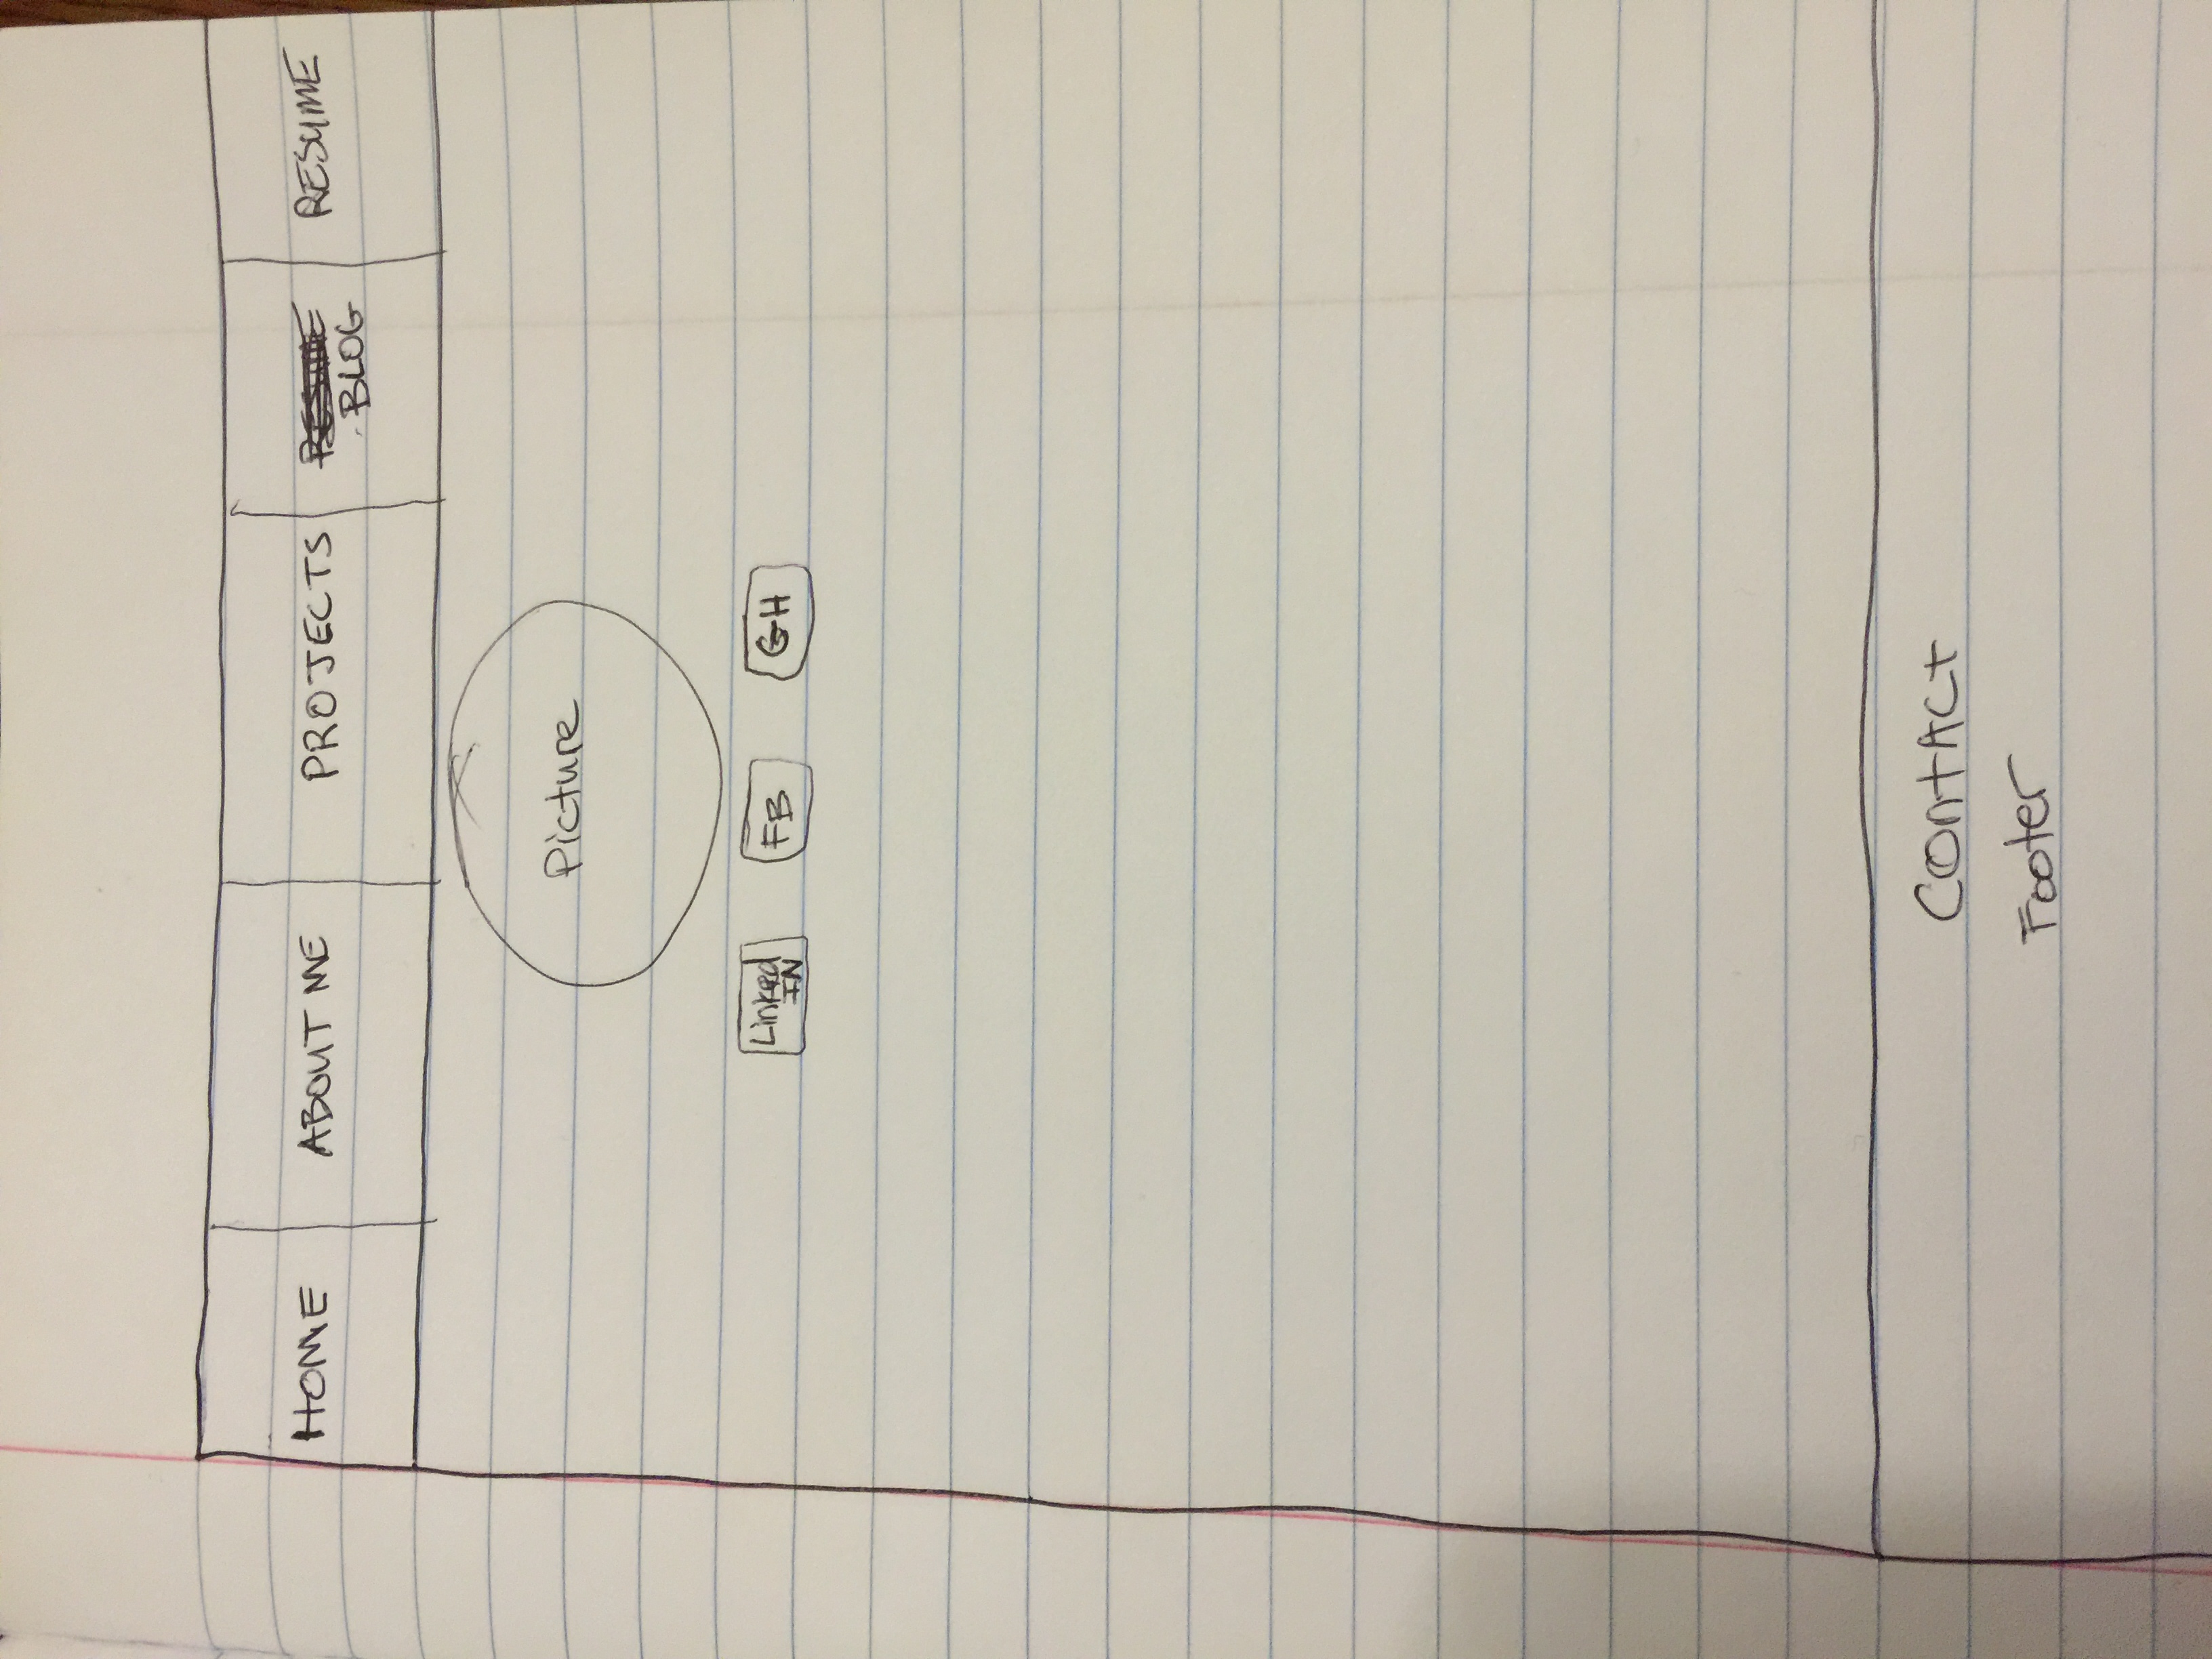 HOME
ABOUT ME
PROJECTS
RESUME
BLOG
RESUME
Picture
Linked
IN
FB
GH
Contact
Footer